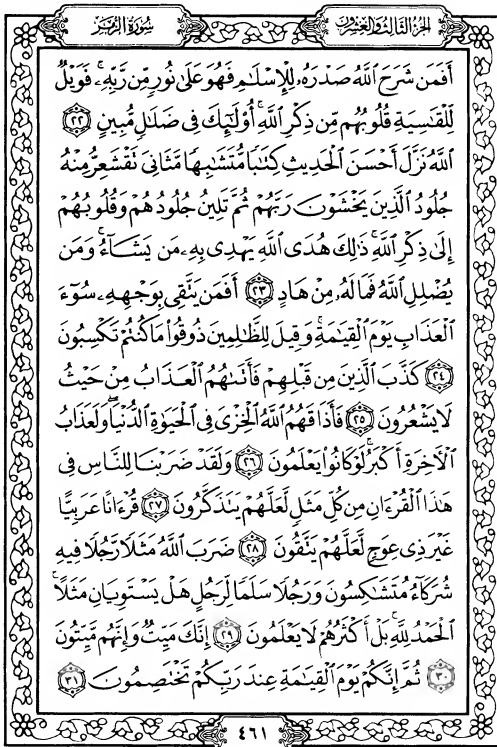 سُورَةُ الزُّمَرِ
الجُزْءُ الثَّالِثُ وَالعِشْرُونَ
أَفَمَن شَرَحَ ٱللَّهُ صَدْرَهُۥ لِلْإِسْلَٰمِ فَهُوَ عَلَىٰ نُورٍ مِّن رَّبِّهِۦۚ فَوَيْلٌ
لِّلْقَٰسِيَةِ قُلُوبُهُم مِّن ذِكْرِ ٱللَّهِۚ أُو۟لَٰٓئِكَ فِى ضَلَٰلٍ مُّبِينٍ ٢٢
ٱللَّهُ نَزَّلَ أَحْسَنَ ٱلْحَدِيثِ كِتَٰبًا مُّتَشَٰبِهًا مَّثَانِىَ تَقْشَعِرُّ مِنْهُ
جُلُودُ ٱلَّذِينَ يَخْشَوْنَ رَبَّهُمْ ثُمَّ تَلِينُ جُلُودُهُمْ وَقُلُوبُهُمْ
إِلَىٰ ذِكْرِ ٱللَّهِۚ ذَٰلِكَ هُدَى ٱللَّهِ يَهْدِى بِهِۦ مَن يَشَآءُۚ وَمَن
يُضْلِلِ ٱللَّهُ فَمَا لَهُۥ مِنْ هَادٍ ٢٣ أَفَمَن يَتَّقِى بِوَجْهِهِۦ سُوٓءَ
ٱلْعَذَابِ يَوْمَ ٱلْقِيَٰمَةِۚ وَقِيلَ لِلظَّٰلِمِينَ ذُوقُوا۟ مَا كُنتُمْ تَكْسِبُونَ
٢٤ كَذَّبَ ٱلَّذِينَ مِن قَبْلِهِمْ فَأَتَىٰهُمُ ٱلْعَذَابُ مِنْ حَيْثُ
لَا يَشْعُرُونَ ٢٥ فَأَذَاقَهُمُ ٱللَّهُ ٱلْخِزْىَ فِى ٱلْحَيَوٰةِ ٱلدُّنْيَاۖ وَلَعَذَابُ
ٱلْأَخِرَةِ أَكْبَرُۚ لَوْ كَانُوا۟ يَعْلَمُونَ ٢٦ وَلَقَدْ ضَرَبْنَا لِلنَّاسِ فِى
هَٰذَا ٱلْقُرْءَانِ مِن كُلِّ مَثَلٍ لَّعَلَّهُمْ يَتَذَكَّرُونَ ٢٧ قُرْءَانًا عَرَبِيًّا
غَيْرَ ذِى عِوَجٍ لَّعَلَّهُمْ يَتَّقُونَ ٢٨ ضَرَبَ ٱللَّهُ مَثَلًا رَّجُلًا فِيهِ
شُرَكَآءُ مُتَشَٰكِسُونَ وَرَجُلًا سَلَمًا لِّرَجُلٍ هَلْ يَسْتَوِيَانِ مَثَلًاۚ
ٱلْحَمْدُ لِلَّهِۚ بَلْ أَكْثَرُهُمْ لَا يَعْلَمُونَ ٢٩ إِنَّكَ مَيِّتٌ وَإِنَّهُم مَّيِّتُونَ
٣٠ ثُمَّ إِنَّكُمْ يَوْمَ ٱلْقِيَٰمَةِ عِندَ رَبِّكُمْ تَخْتَصِمُونَ ٣١
٤٦١